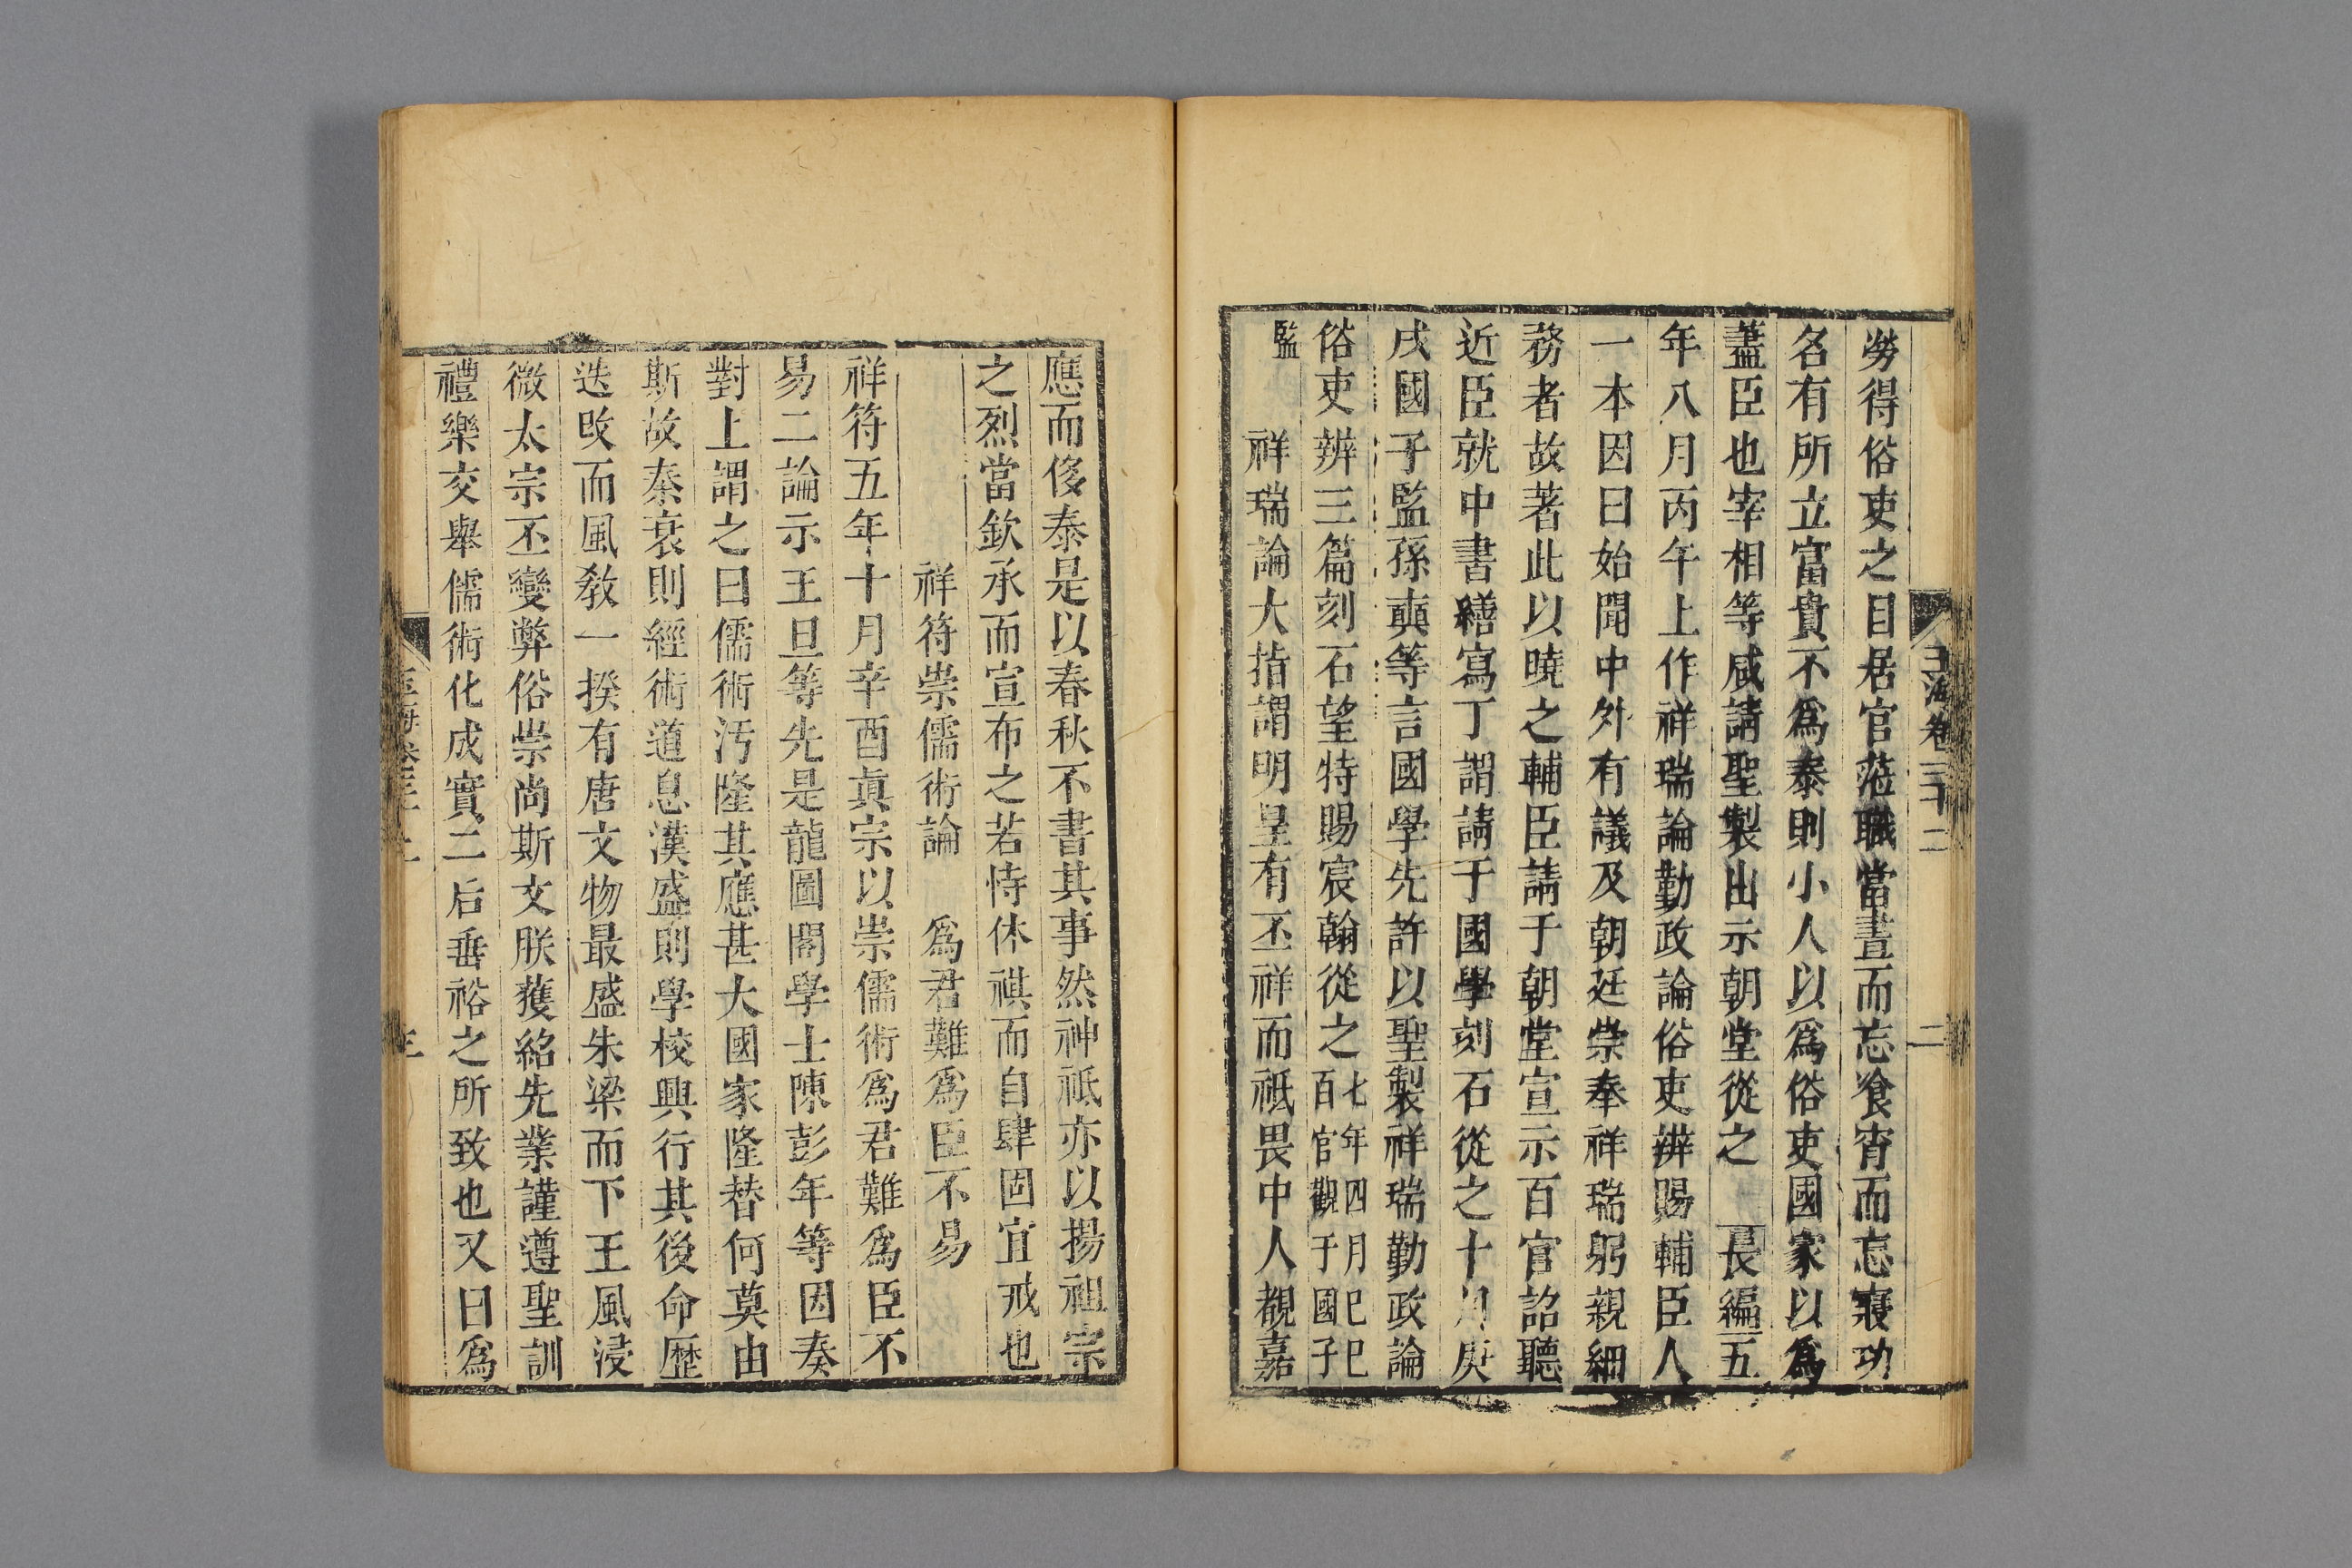 玉海卷三十二 二
勞得俗吏之目居官蒞職當晝而忘飡宵而忘寢功
名有所立富貴不爲泰則小人以爲俗吏國家以爲
藎臣也宰相等咸請聖製出示朝堂從之 長編五
年八月丙午上作祥瑞論勤政論俗吏辨賜輔臣人
一本因曰始聞中外有議及朝廷崇奉祥瑞躬親細
務者故著此以曉之輔臣請于朝堂宣示百官詔聽
近臣就中書繕寫丁謂請于國學刻石從之十月庚
戌國子監孫奭等言國學先許以聖製祥瑞勤政論
俗吏辨三篇刻石望特賜宸翰從之七年四月巳巳百官觀于國子
監
祥瑞論大指謂明皇有丕祥而祗畏中人覩嘉
應而侈泰是以春秋不書其事然神祗亦以揚祖宗
之烈當欽承而宣布之若恃休祺而自肆固宜戒也
祥符崇儒術論 爲君難爲臣不易
祥符五年十月辛酉眞宗以崇儒術爲君難爲臣不
易二論示王旦等先是龍圖閣學士陳彭年等因奏
對上謂之曰儒術汚隆其應甚大國家隆替何莫由
斯故秦衰則經術道息漢盛則學校興行其後命歷
迭改而風敎一揆有唐文物最盛朱梁而下王風浸
微太宗丕變弊俗崇尚斯文朕獲紹先業謹遵聖訓
禮樂交舉儒術化成實二后垂裕之所致也又曰爲
玉海卷三十二 三